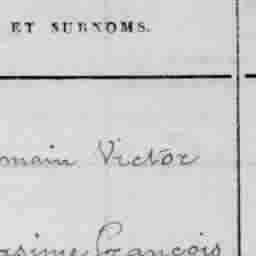 ET SURNOMS.
omain Victor
axime François